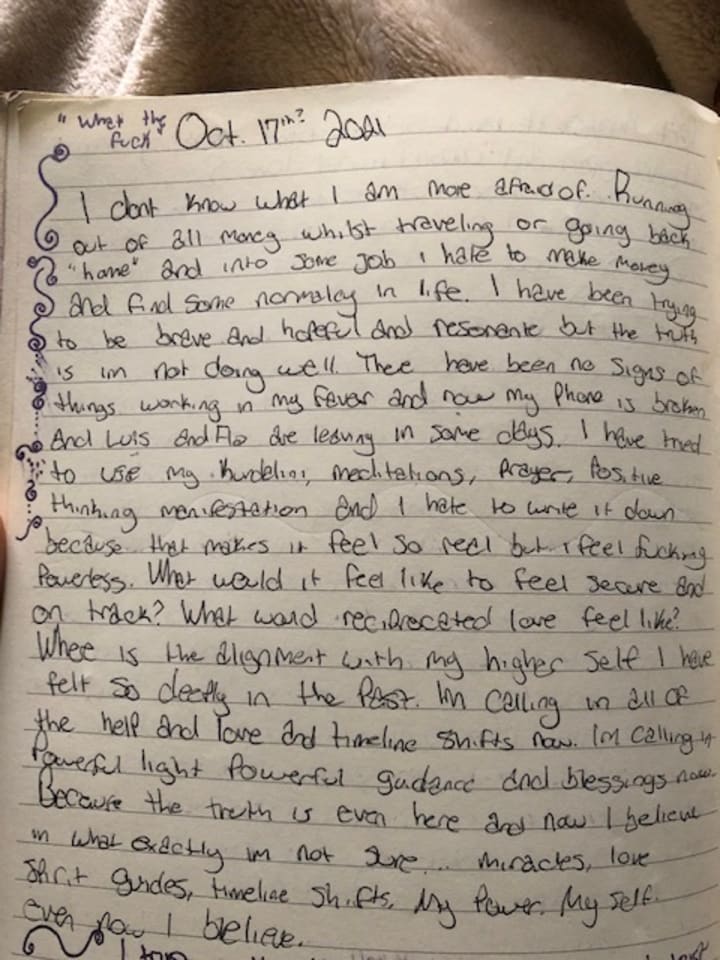 "What the
fuck"
Oct. 17th? 2021
I dont know what I am more afraid of. Running
out of all money whilst traveling or going back
"home" and into some job i hate to make money
and find some normalcy in life. I have been trying
to be brave and hopeful and resonante but the truth
is im not doing well. There have been no signs of
things working in my fever and now my phone is broken
And Luis and Flo are leaving in some days. I have tried
to use my kundelini, meditations, prayer, positive
thinking manifestation and I hate to write it down
because that makes it feel so real but i feel fucking
powerless. What would it feel like to feel secure and
on track? What would reciprocated love feel like?
Where is the alignment with my higher self I have
felt so deeply in the past. Im calling in all of
the help and love and timeline shifts now. Im calling in
powerful light powerful guidance and blessings now.
Because the truth is even here and now I believe
in what exactly im not sure... miracles, love
spirit guides, timeline shifts, My Power. My self.
even now I believe.